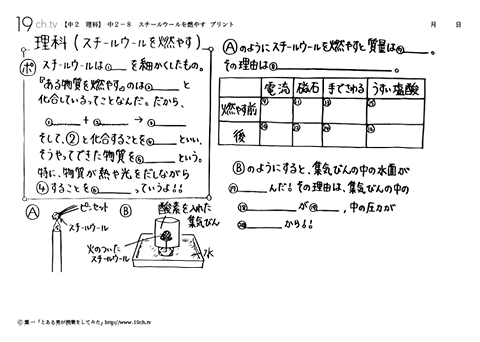 19ch.tv 【中2 理科】 中2-8 スチールウールを燃やす プリント 月 日
理科(スチールウールを燃やす)
ポ スチールウールは① を細かくしたもの。
『ある物質を燃やす』のは② と
化合しているってことなんだ。だから、
① + ② → ③
そして、②と化合することを④ といい、
そうやってできた物質を⑤ という。
特に、物質が熱や光をだしながら
④することを⑥ っていうよ!!
Ⓐのようにスチールウールを燃やすと質量は⑦ 。
その理由は⑧ 。
電流 磁石 手でさわる うすい塩酸
燃やす前 ⑨ ⑪ ⑬ ⑮
後 ⑩ ⑫ ⑭ ⑯
Ⓑのようにすると、集気びんの中の水面が
⑰ んだ!その理由は、集気びんの中の
⑱ が⑲ 、中の圧力が
⑳ から!!
Ⓐ
ピンセット
スチールウール
Ⓑ
酸素を入れた
集気びん
火のついた
スチールウール
水
© 葉一「とある男が授業をしてみた」http://www.19ch.tv